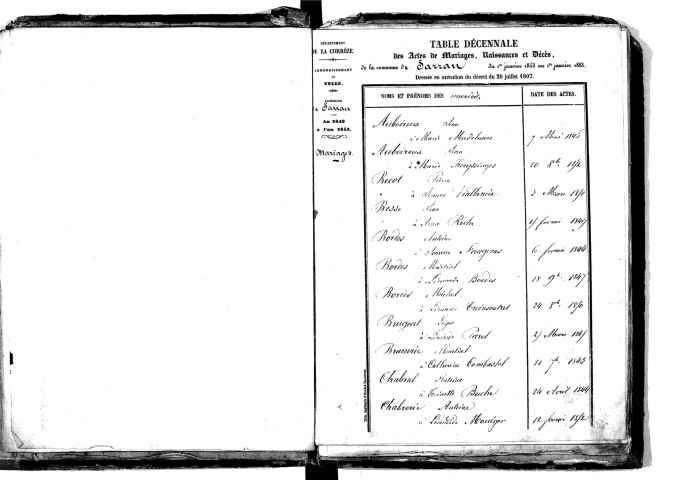 DÉPARTEMENT
DE LA CORRÈZE.
ARRONDISSEMENT
DE
TULLE.
COMMUNE
de Sarran
An 1843
à l'an 1853.
Mariages.
TABLE DÉCENNALE
des Actes de Mariages, Naissances et Décès,
de la commune de Sarran du 1er janvier 1843 au 1er janvier 1853.
Dressée en exécution du décret du 20 juillet 1807.
NOMS ET PRÉNOMS DES mariés. DATE DES ACTES.
Aubeiroux Jean
à Marie Madelmon 7 1846
Aubeiroux Jean
à Marie 20 8bre 1852
Recot Pierre
à Jeanne Viallaneix 3 Mars 1850
Besse Jean
à Anna Roche février 1847
Bordes Antoine
à Jeanne 6 février 1844
Bordes Martial
à Léonarde Bordes 18 9bre 1847
Bordes Michel
à Léonarde 24 8bre 1850
Bruzeat
à Léonarde 25 Mars 1845
Brunerie Martial
à Catherine Combastel 21 7bre 1843
Chabral Antoine
à Toinette Buche 24 Avril 1844
Chabrerie Antoine
à Léonarde Monéger 12 février 1852